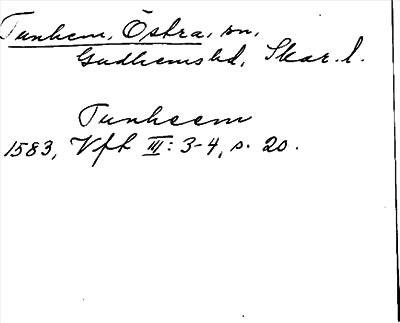 Tunhem, Östra, sn,
Gudhems hd, Skar. l.
Tunheem
1583, Vft III: 3-4, s. 20.